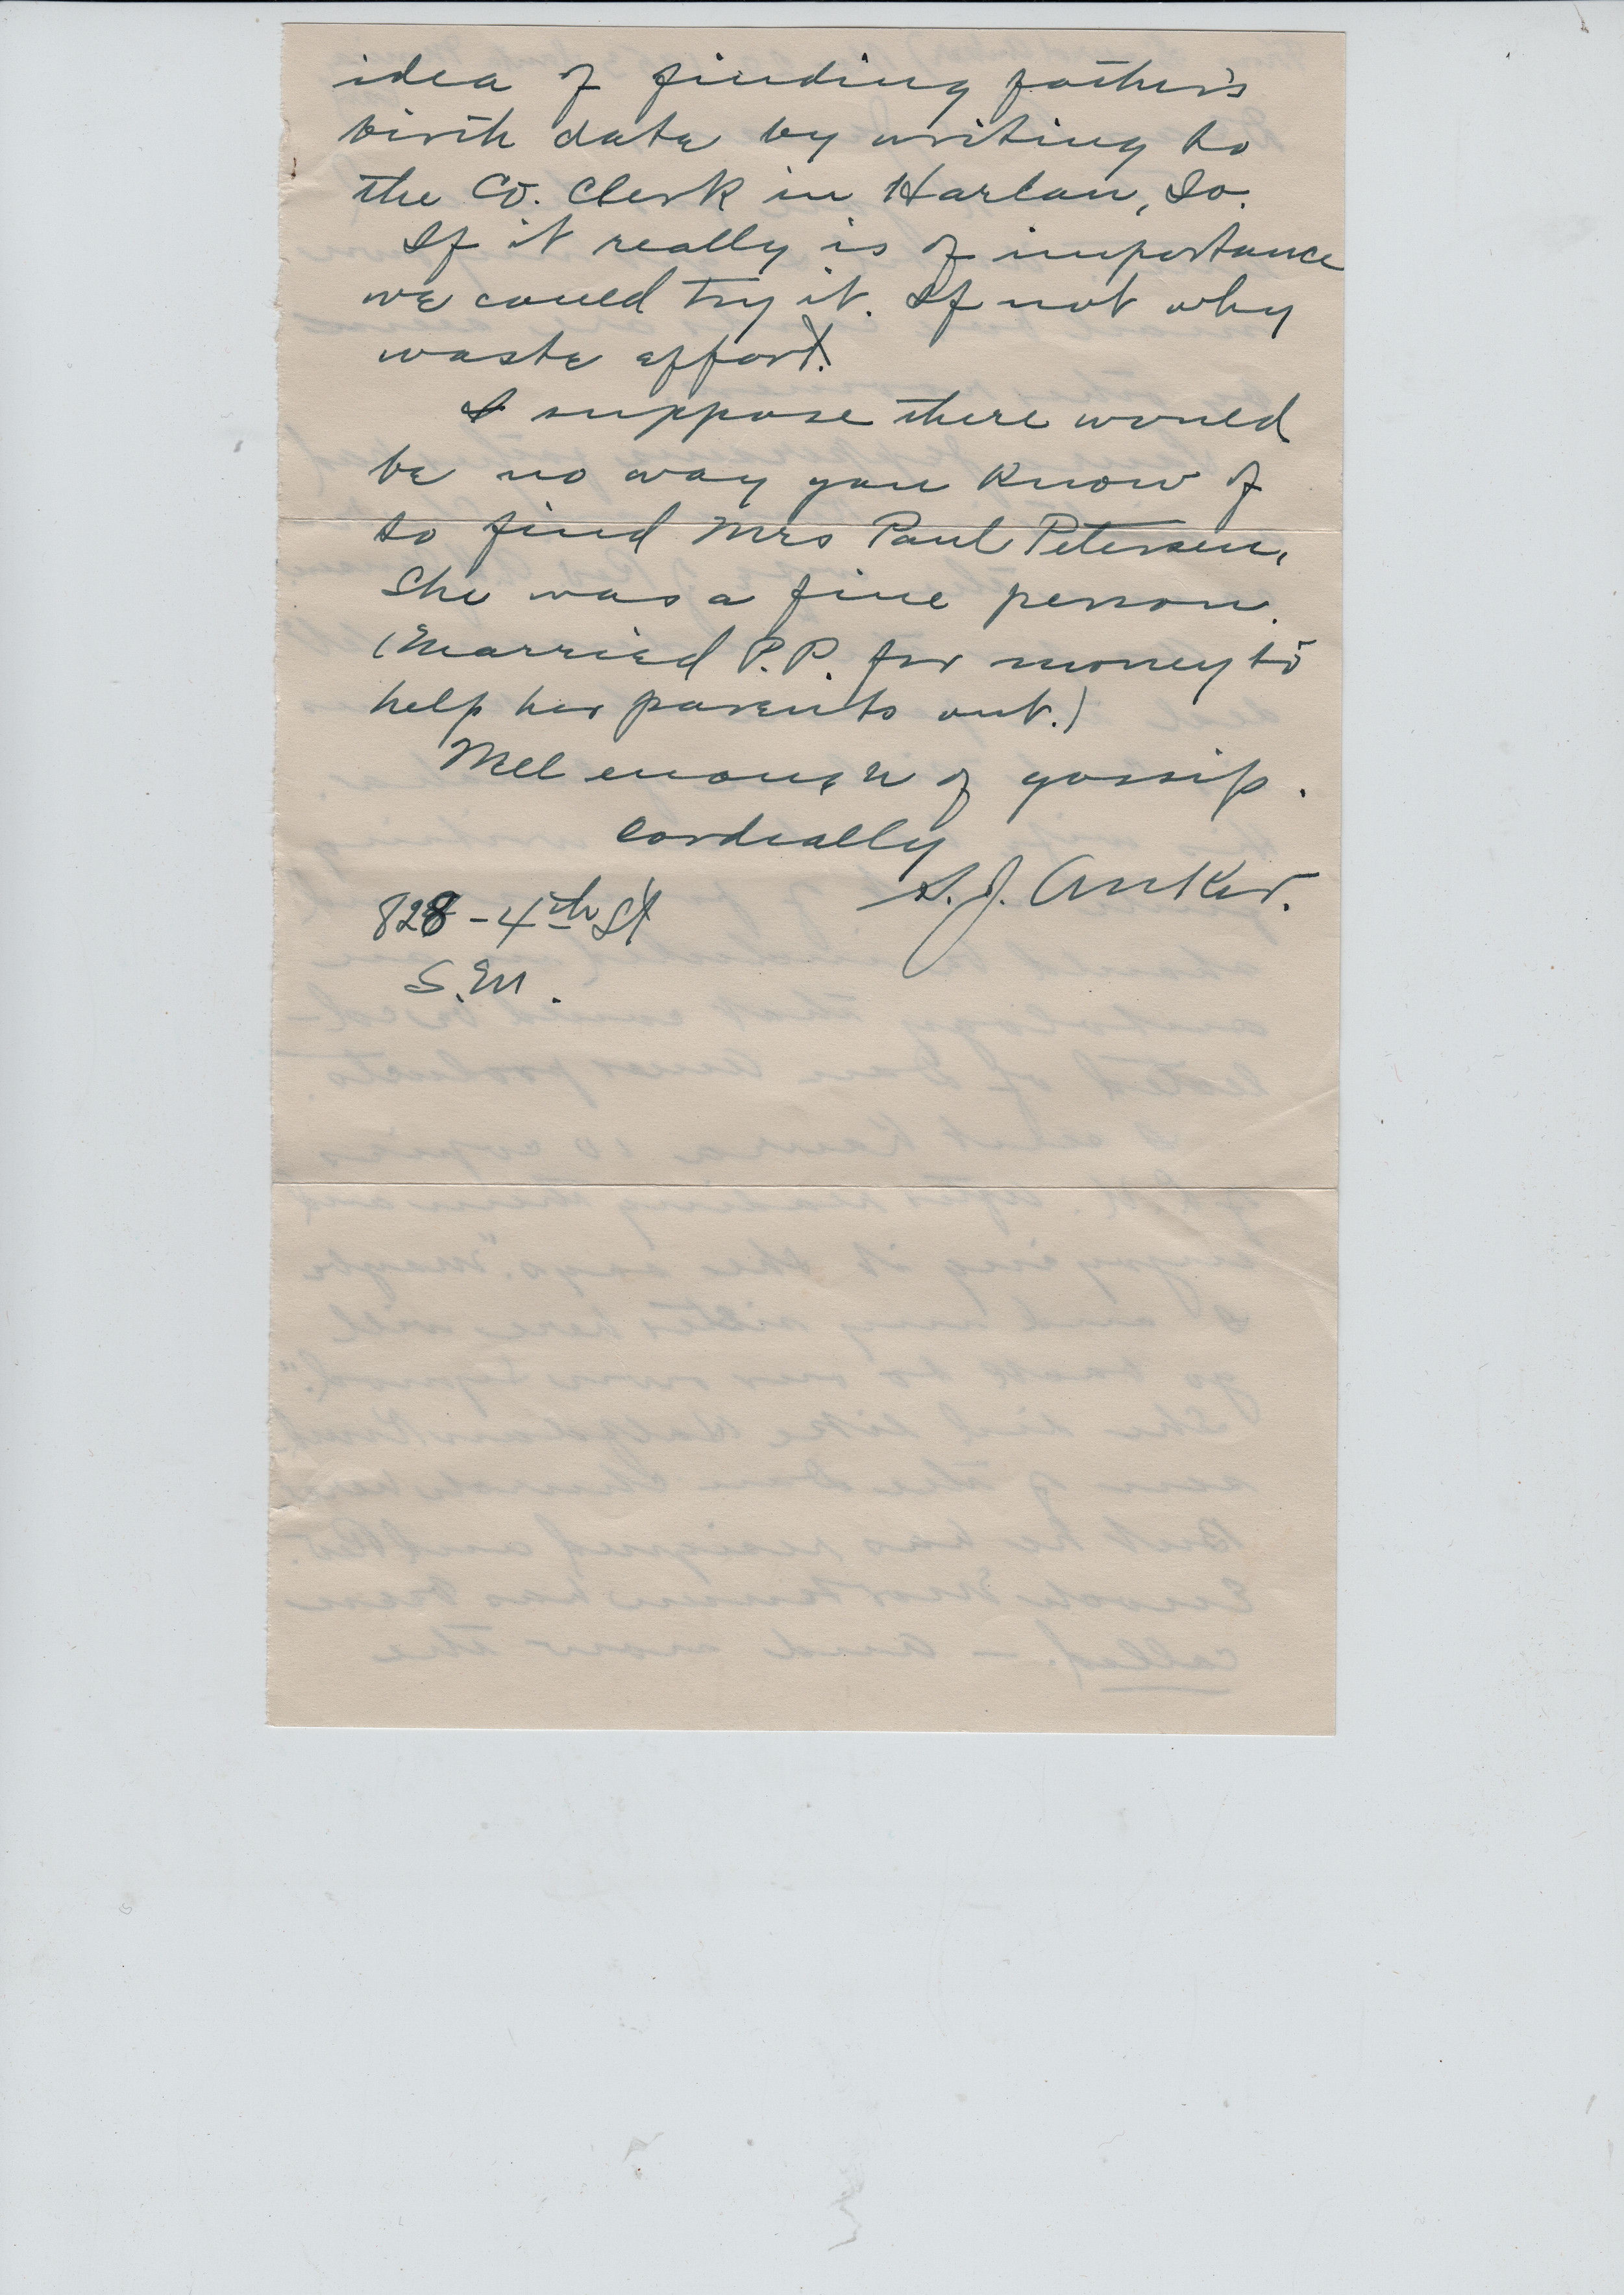 idea of finding father's
birth date by writing to
the Co. Clerk in Harlan, Io.
If it really is of importance
we could try it. If not why
waste effort.
I suppose there would
be no way you know of
to find Mrs Paul Petersen,
She was a fine person.
(Married P.P. for money to
help her parents out.)
Well enough of gossip.
Cordially
S. J. Anker.
828 - 4th St
S.M.